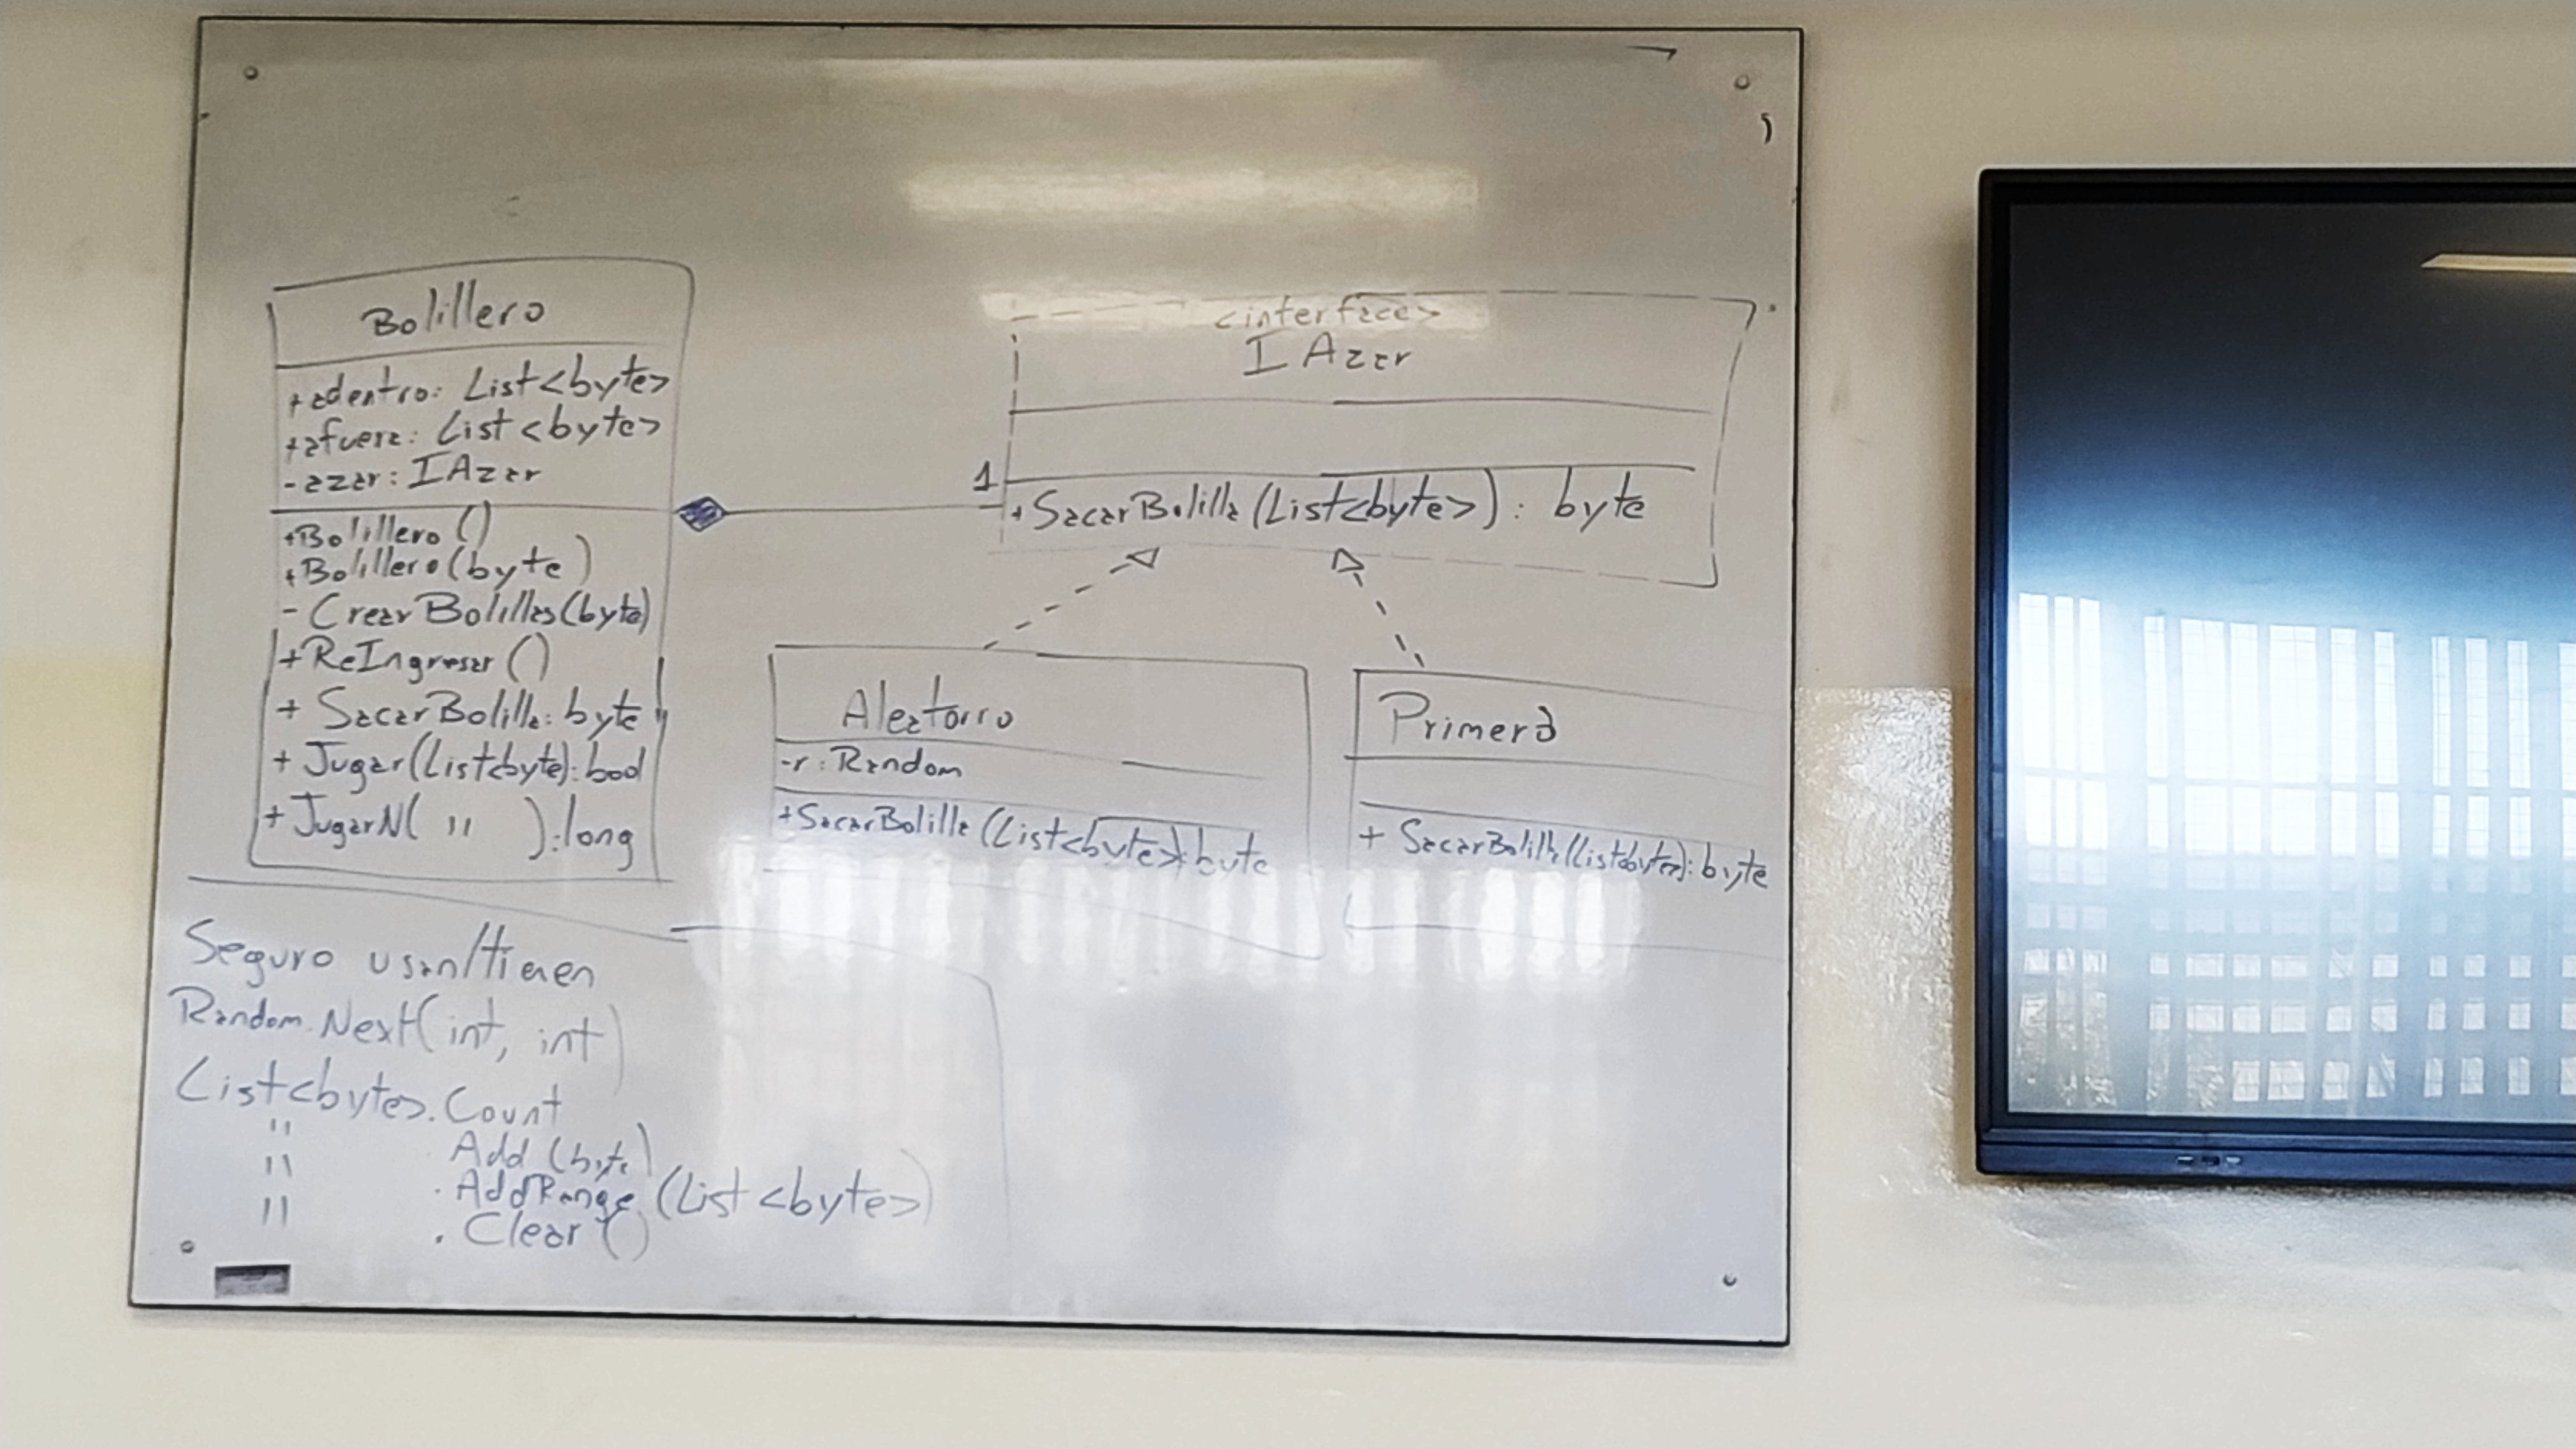 Bolillero
+adentro: List<byte>
+afuera: List<byte>
-azar: IAzar
+Bolillero()
+Bolillero(byte)
- CrearBolillas(byte)
+ReIngresar()
+ SacarBolilla: byte
+ Jugar(List<byte): bool
+ JugarN( " ): long
1
<interface>
IAzar
+SacarBolilla(List<byte>): byte
Aleatorio
-r: Random
+SacarBolilla(List<byte>): byte
Primero
+ SacarBolilla(List<byte>): byte
Seguro usan/tienen
Random.Next(int, int)
List<byte>.Count
" Add(byte)
" .AddRange(List<byte>)
" .Clear()